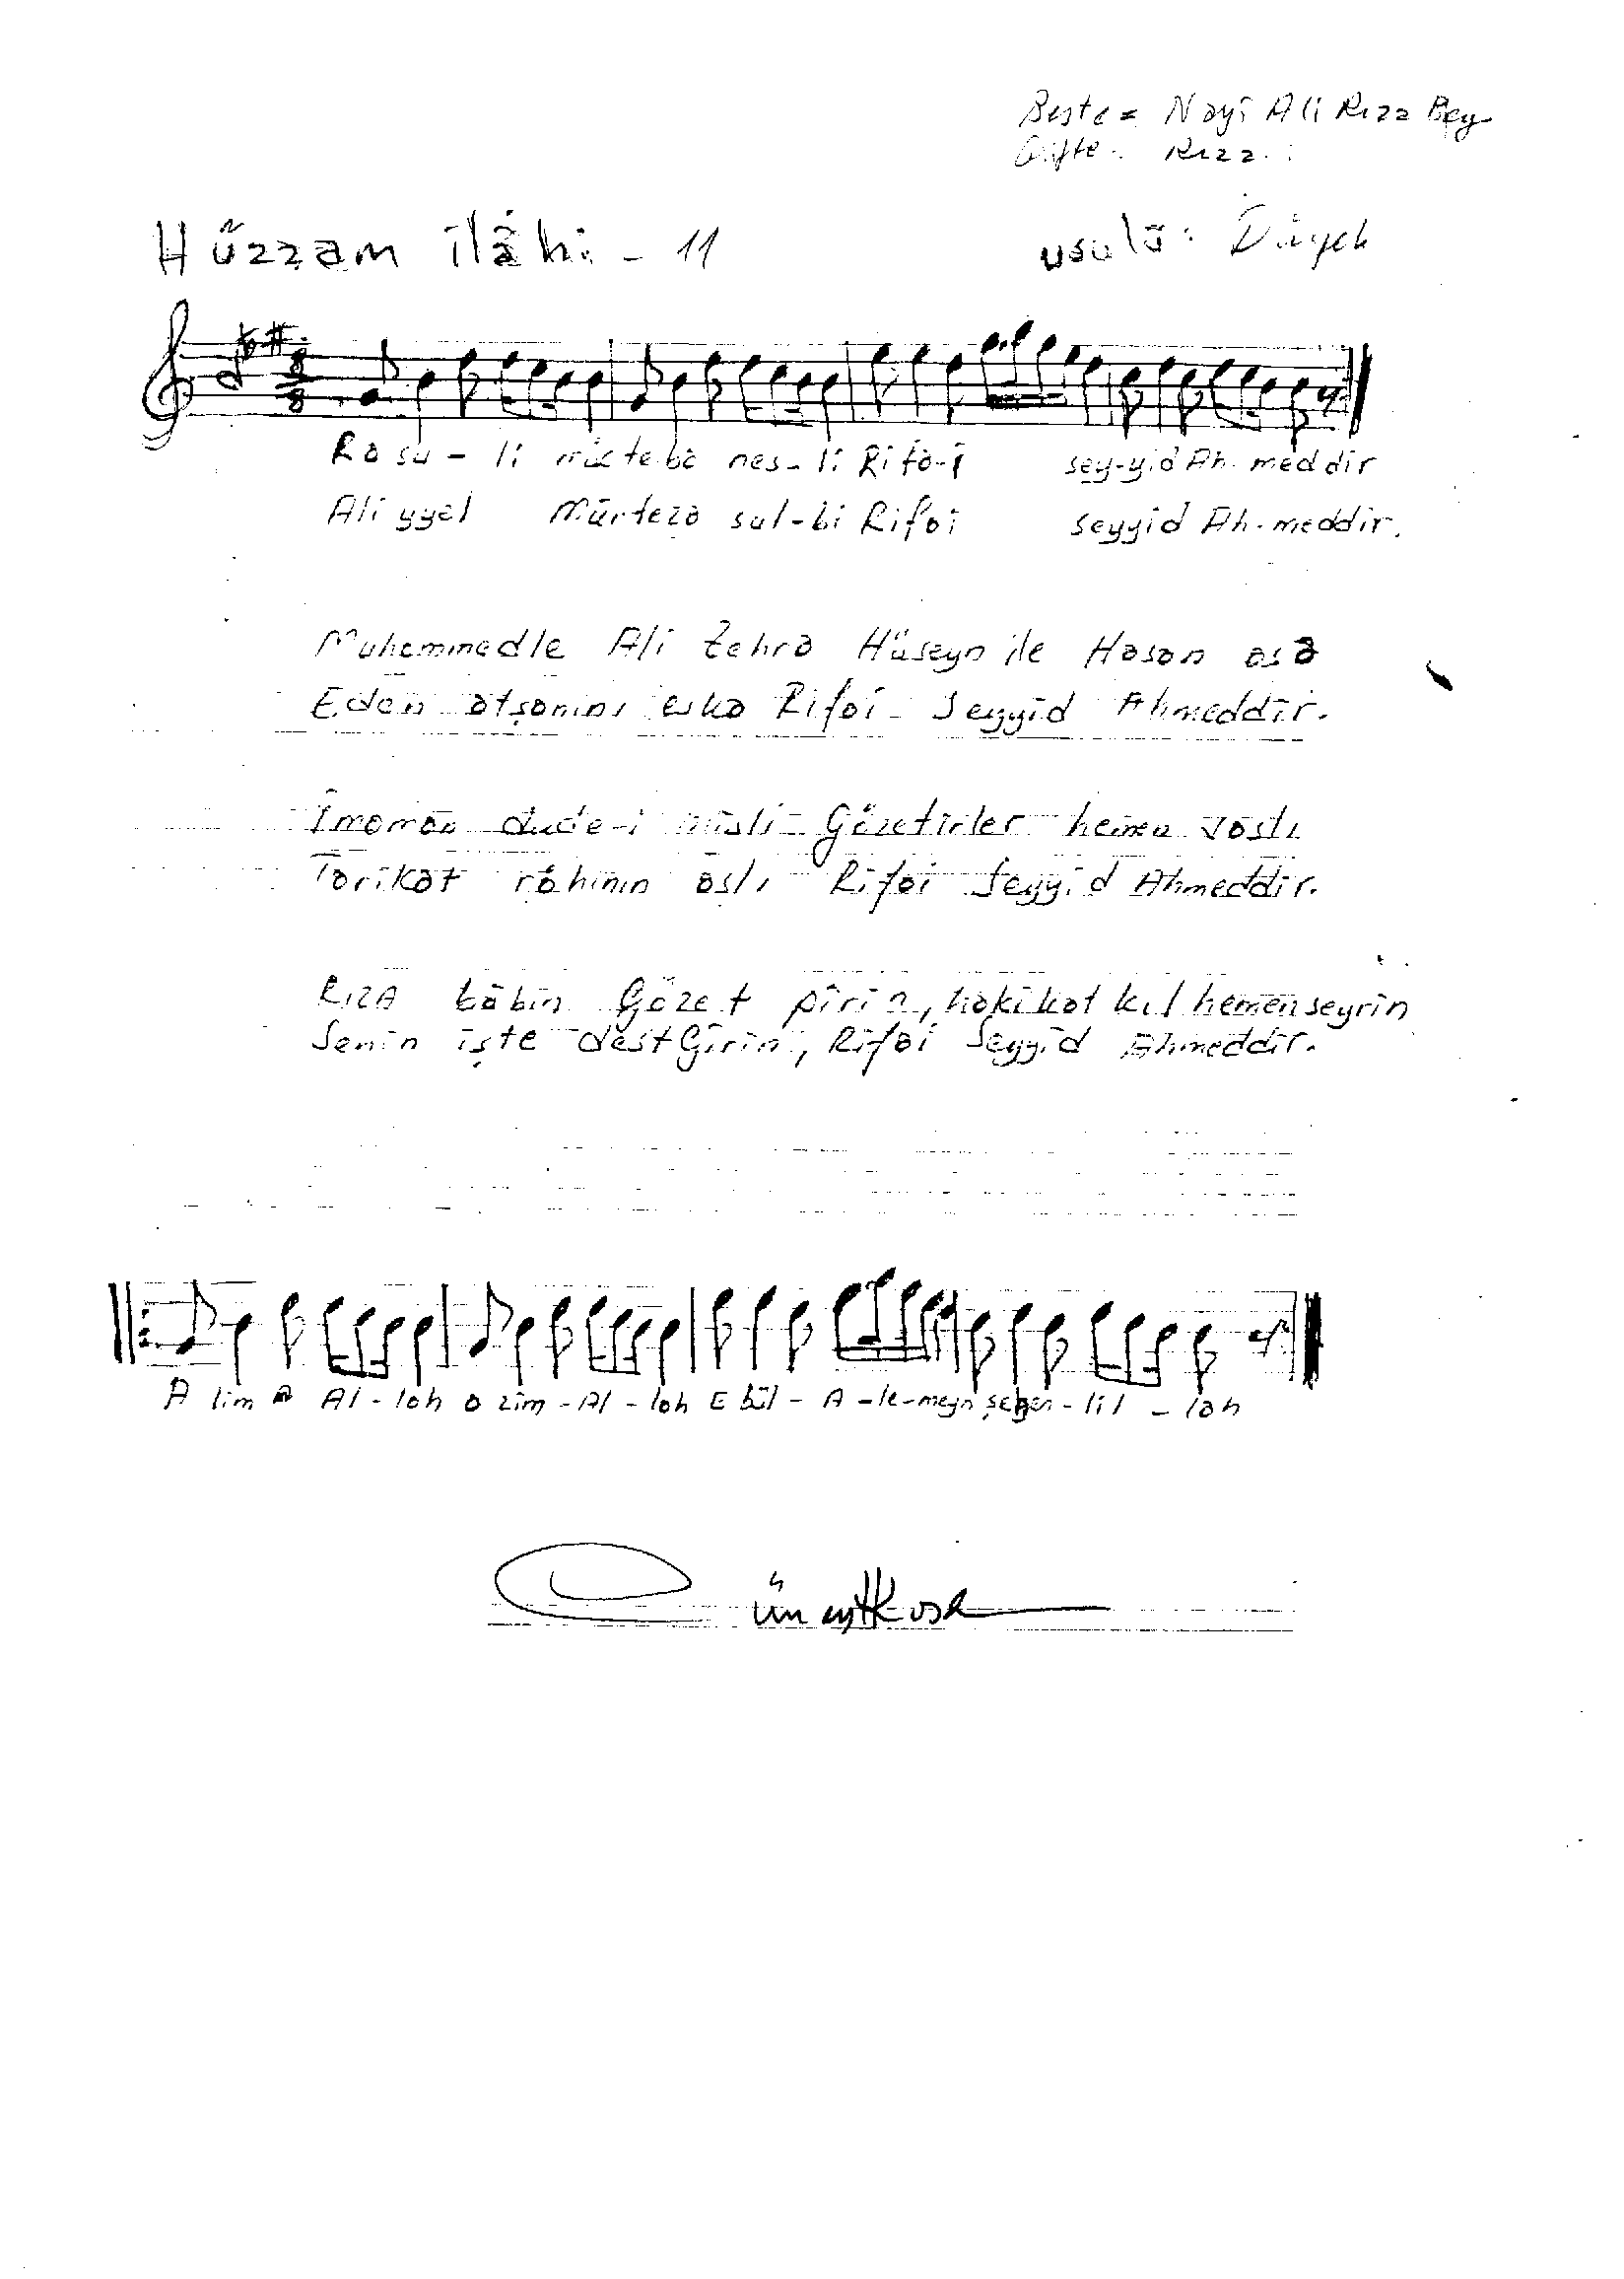 Beste = Nayi Ali Rıza Bey
Güfte : Rıza
Hüzzam ilâhi - 11
usulü : Düyek
8
8
Ra su - li mücteba nes - li Rifa-i sey-yid Ah. med dir
Ali yyel Mürteza sul-bi Rifai seyyid Ah. meddir.
Muhammedle Ali Zehra Hüseyn ile Hasan asa
Eden Rifai Seyyid Ahmeddir.
İmaman dude-i nesli Gözetirler heman vaslı
Tarikat râhinın aslı Rifai Seyyid Ahmeddir.
RIZA bâbin Gözet pîrin, hakikat kıl hemen seyrin
Senin işte destGirin, Rifai Seyyid Ahmeddir.
A lim Al - lah a zim - Al - lah E bül - A - le-meyn şeyen - lil - lah